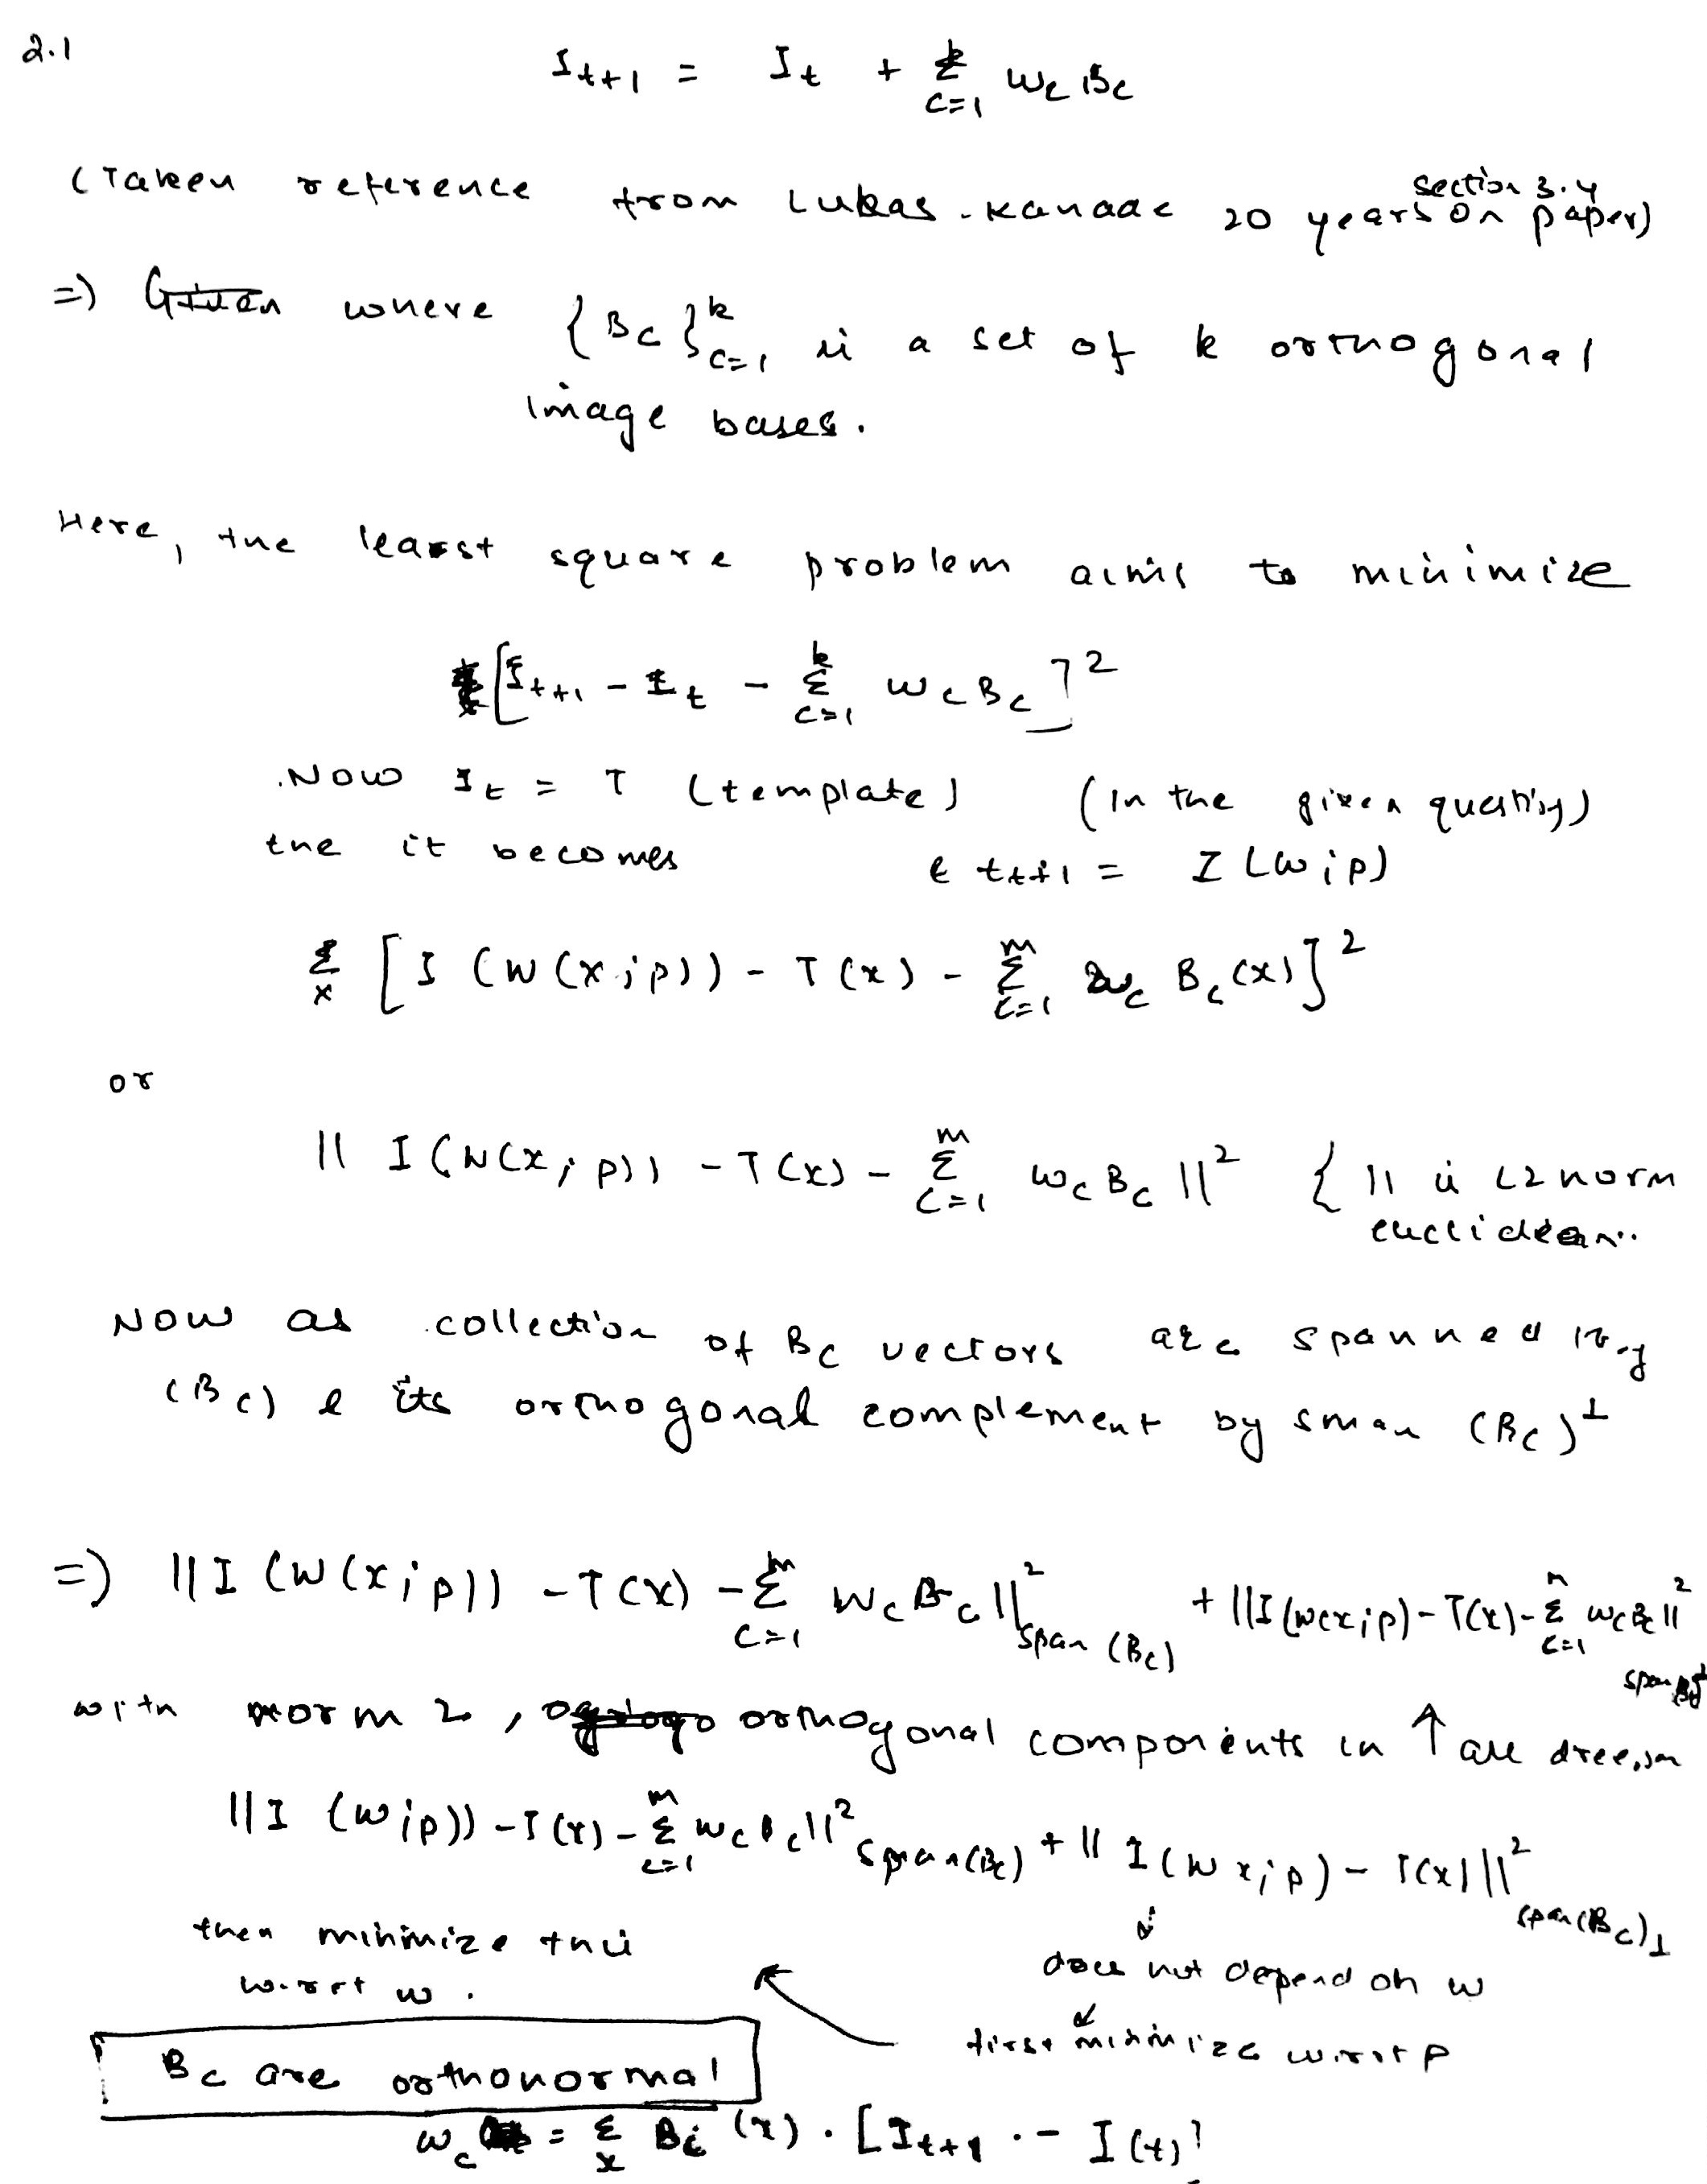 2.1
I_{t+1} = I_t + Σ_{c=1}^{k} w_c B_c
(Taken reference from Lukas-Kanade 20 years on paper) section 3.4
=) where {B_c}_{c=1}^{k} is a set of k orthogonal
image bases.
Here, the least square problem aims to minimize
[I_{t+1} - I_t - Σ_{c=1}^{k} w_c B_c]^2
Now I_t = T (template) (in the given question)
the it becomes & t_{t+1} = I(w;p)
Σ_x [I(W(x;p)) - T(x) - Σ_{c=1}^{m} w_c B_c(x)]^2
or
|| I(W(x;p)) - T(x) - Σ_{c=1}^{m} w_c B_c ||^2 { || is L2 norm
euclidean..
Now as collection of B_c vectors are spanned by
(B_c) & its orthogonal complement by (B_c)^⊥
=) || I(W(x;p)) - T(x) - Σ_{c=1}^{m} w_c B_c ||^2_{span(B_c)} + || I(w(x;p) - T(x) - Σ_{c=1}^{m} w_c B_c ||^2
with norm 2, orthogonal components in ↑ are
|| I(w;p)) - T(x) - Σ_{c=1}^{m} w_c B_c ||^2_{span(B_c)} + || I(W x;p) - T(x) ||^2_{span(B_c)⊥}
then minimize this
w.r.t w.
does not depend on w
first minimize w.r.t p
B_c are orthonormal
w_c = Σ_x B_i(x) . [I_{t+1} - I(t)]